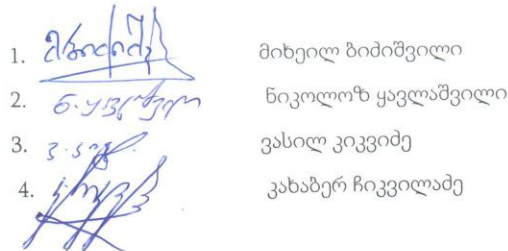 1. მიხეილ ბიძიშვილი
2. ნ. ყავლაშვილი ნიკოლოზ ყავლაშვილი
3. ვ. კიკ. ვასილ კიკვიძე
4. კახაბერ ჩიკვილაძე